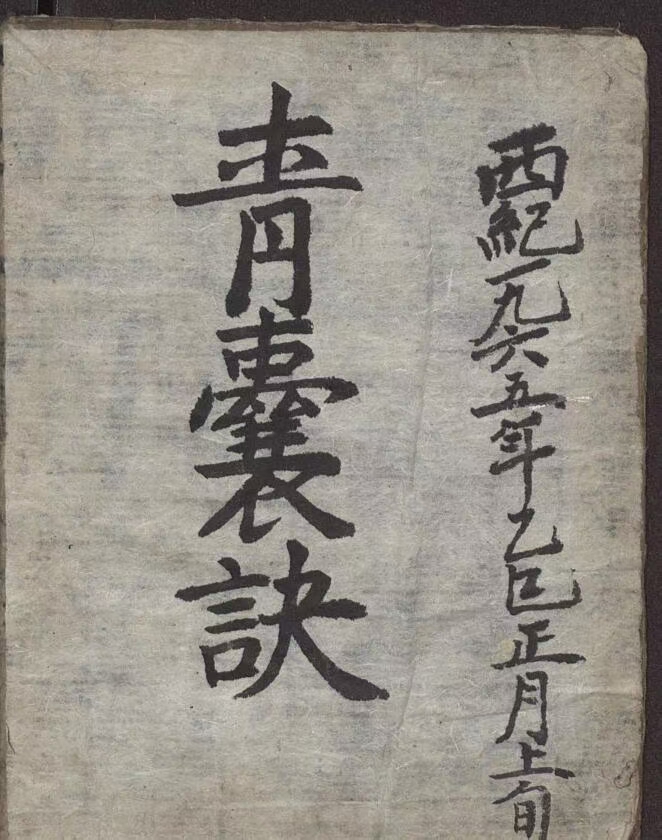 西紀一九六五年乙巳正月上旬
青囊訣